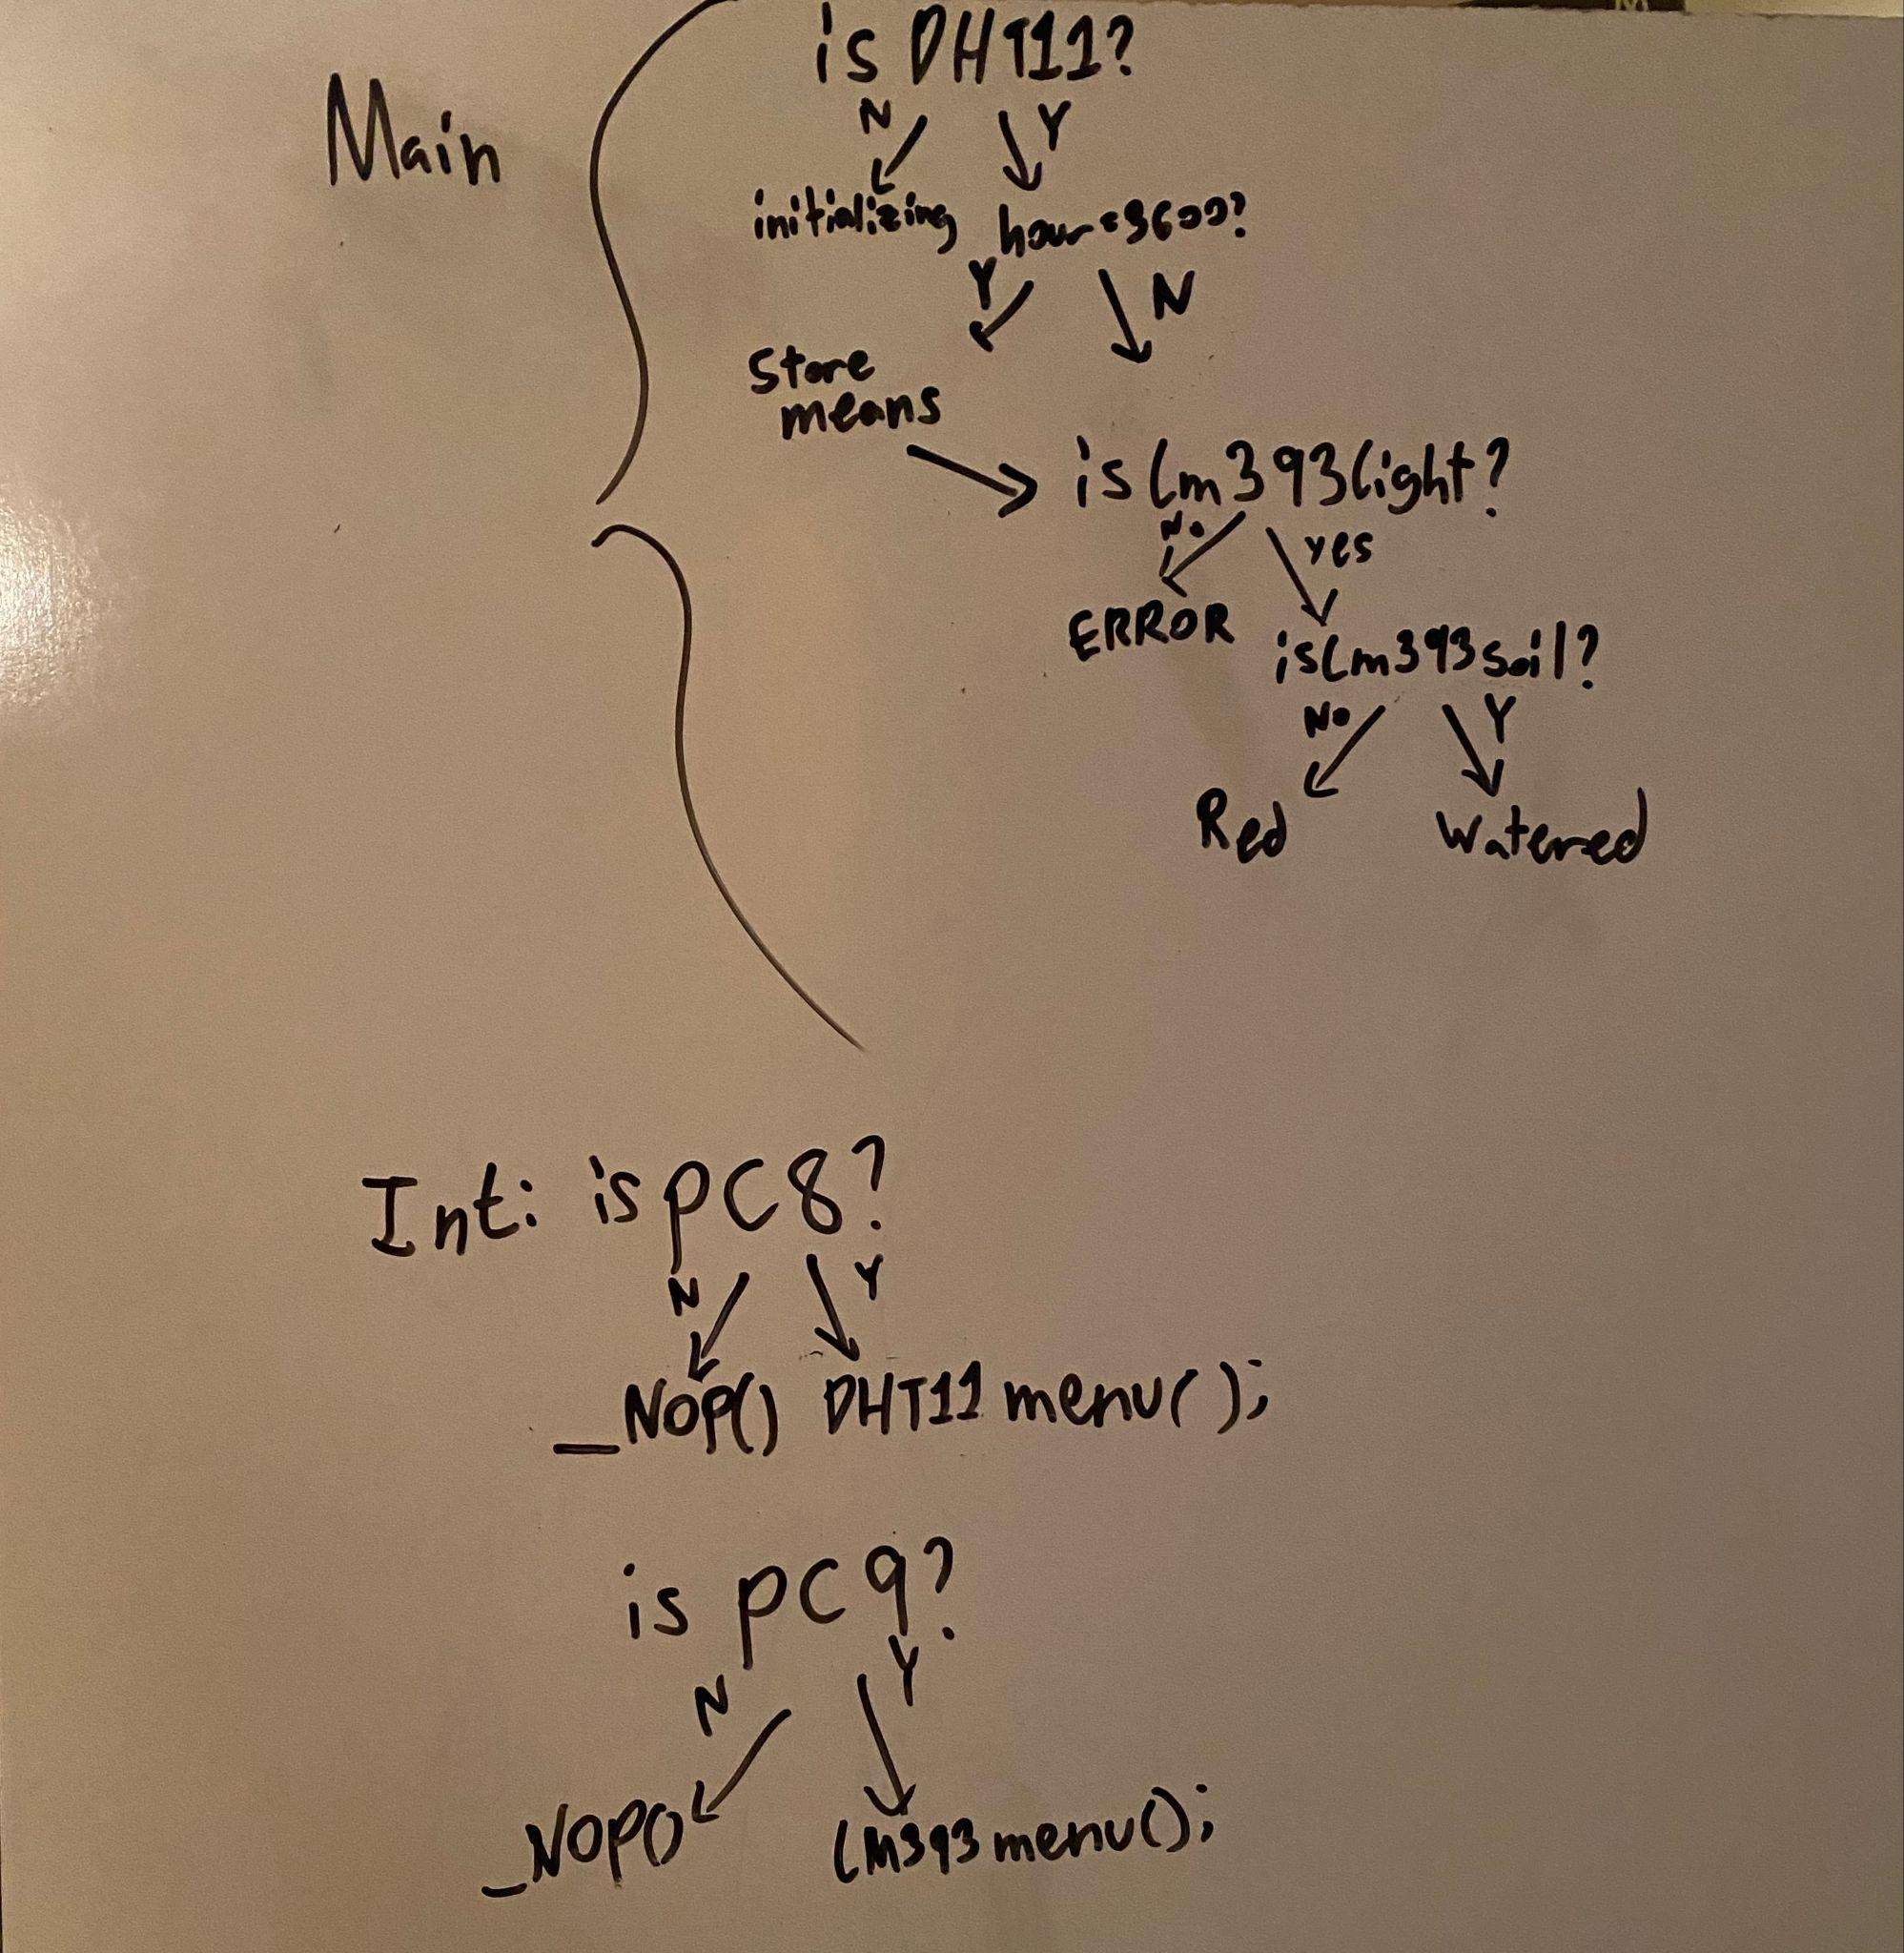 Main
is DHT11?
N Y
initializing hour=3600?
Y N
Store
means
is Lm393light?
No yes
ERROR
isLm393soil?
No Y
Red Watered
Int: is PC8?
N Y
_NOP() DHT11 menu();
is PC9?
N Y
_NOP() Lm393 menu();